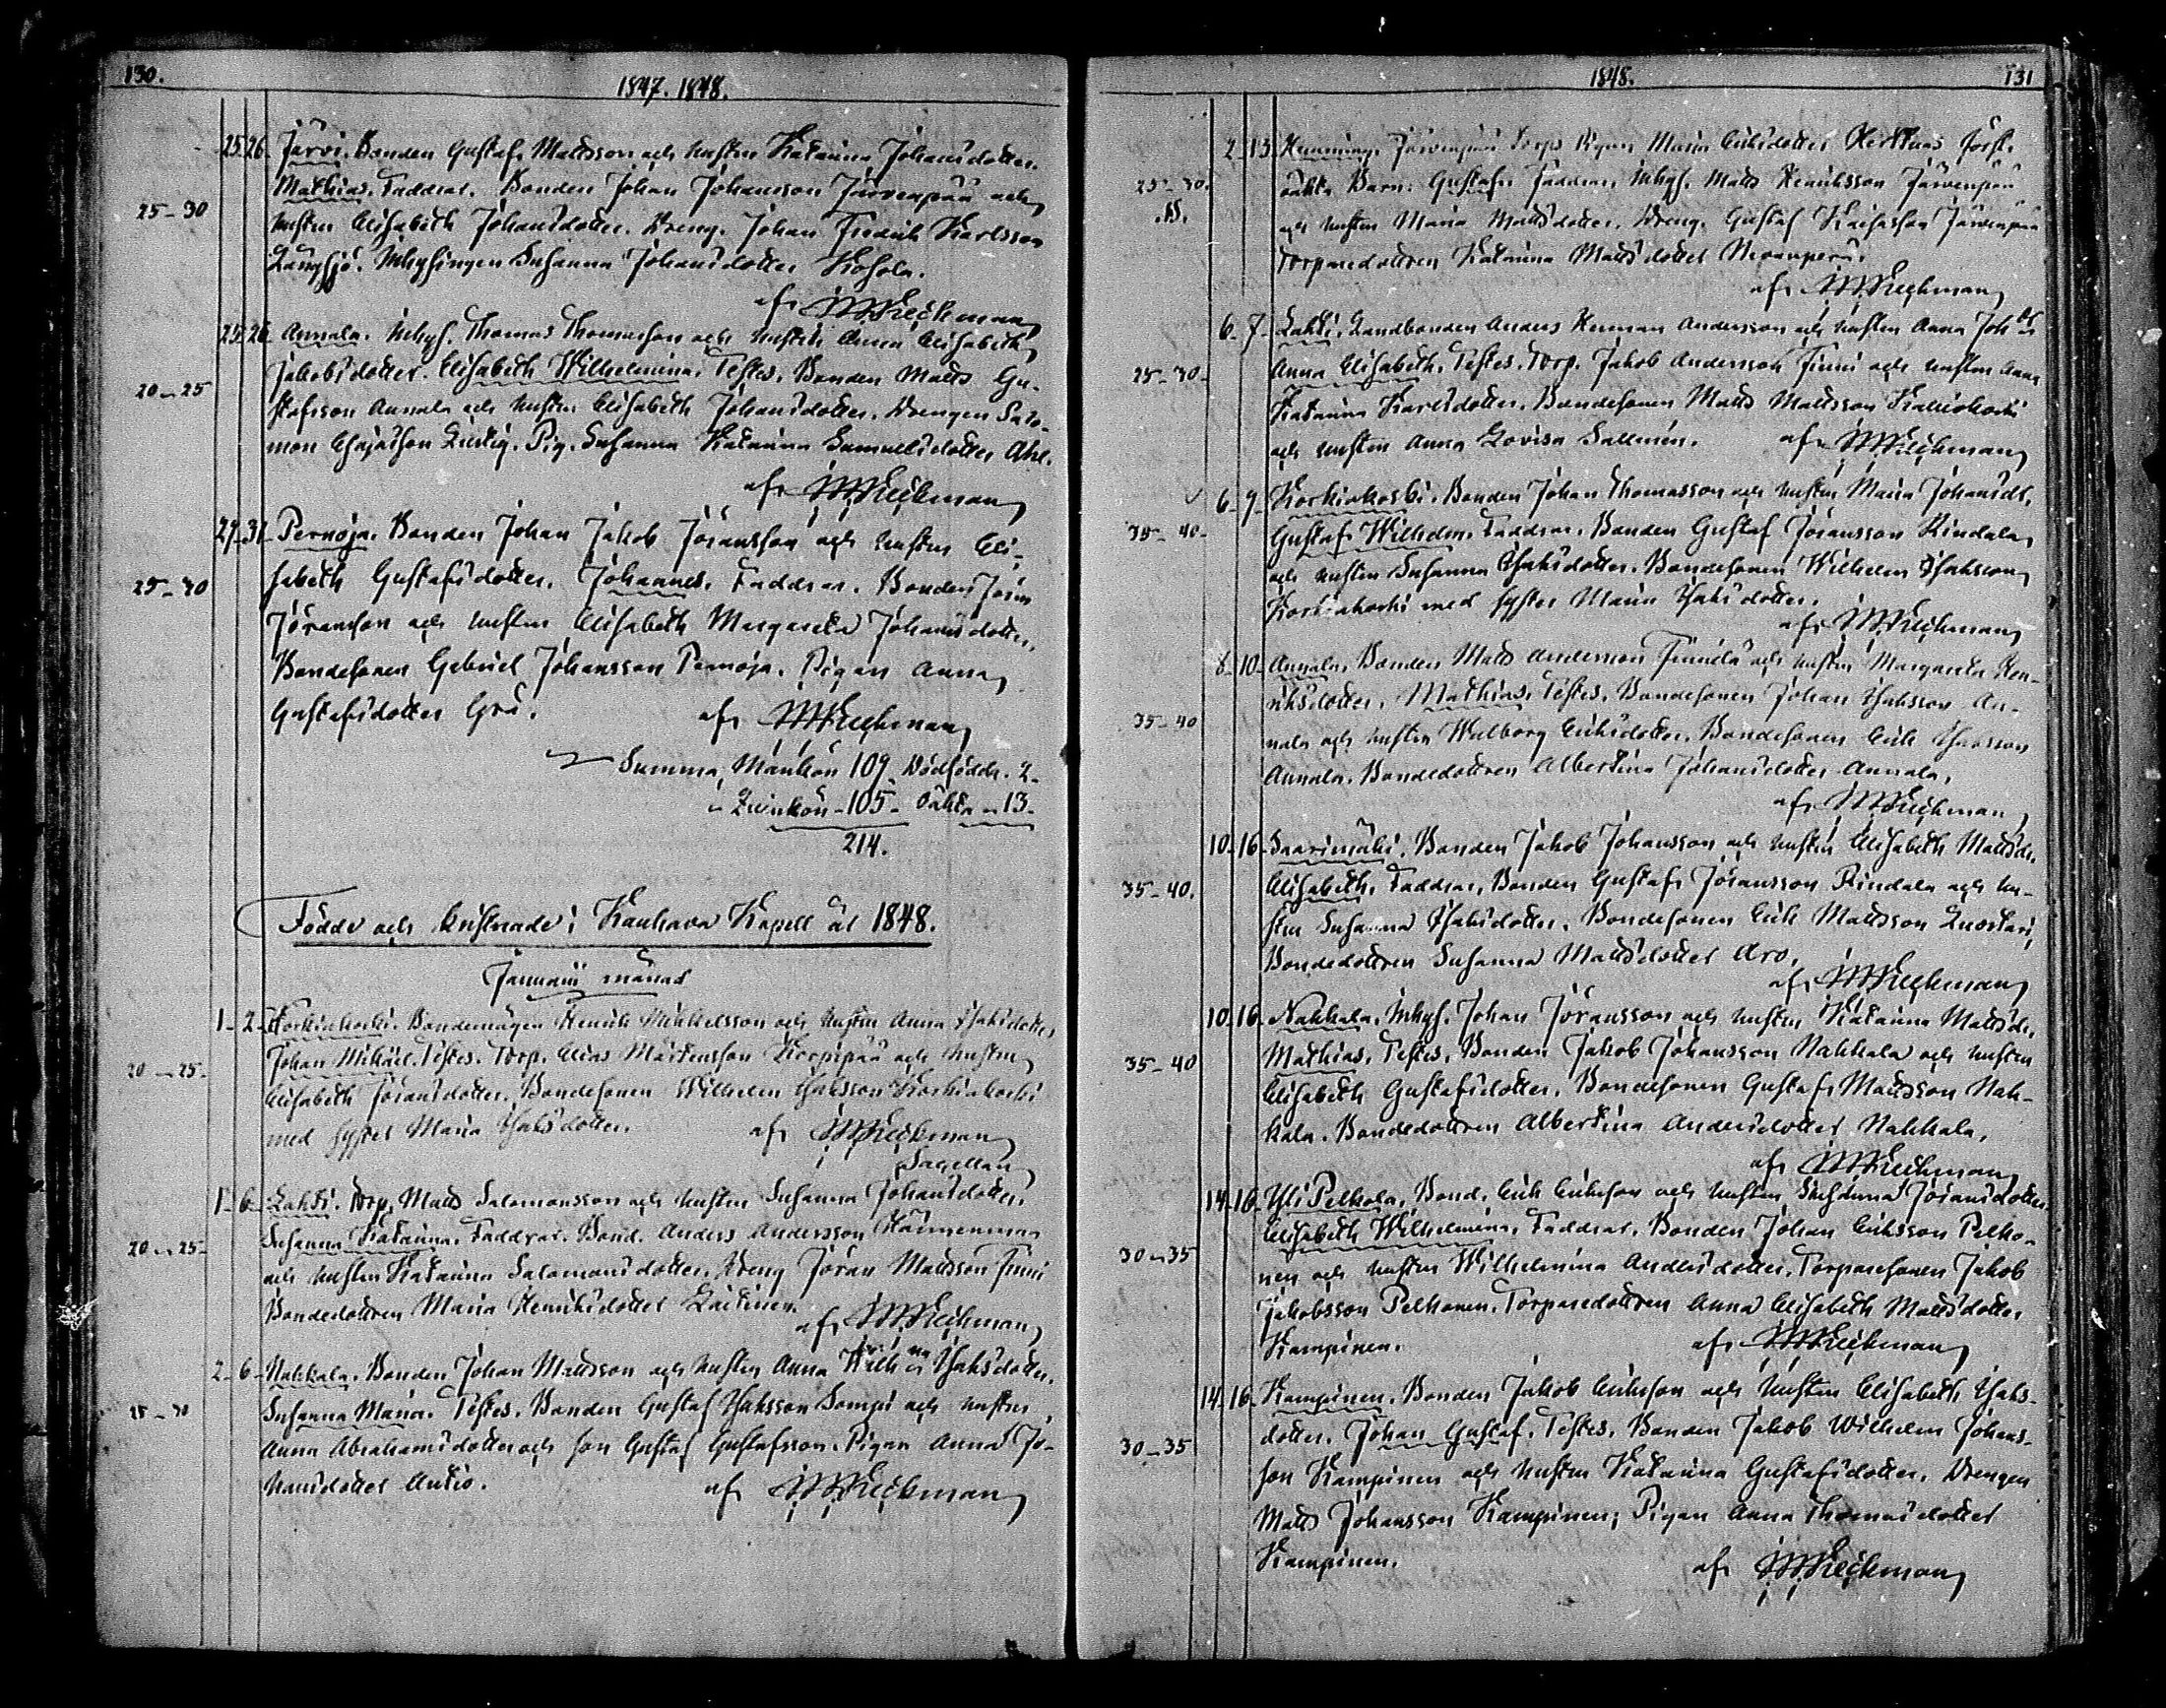 130.
1847. 1848.
25. 26. Järvi. Bonden Gustaf Mattsson och hustru Katarina Johansdotter.
Mathias. Faddrar. Bonden Johan Johansson Järvenpää och
25-30
hustru Elisabeth Johansdotter. Dreng. Johan Fredrik Karlsson
Långsjö. Inhysingen Susanna Johansdotter Kosola.
af
25. 26. Annala. Inhys. Thomas Thomasson och hustru Anna Elisabeth
Jakobsdotter. Elisabeth Wilhelmina. Testes. Bonden Matts Gu-
20-25
stafsson Annala och hustru Elisabeth Johansdotter. Drengen Salo-
mon Esajasson. Pig. Susanna Katarina Samuelsdotter
af
29. 31. Pernoja. Bonden Johan Jakob Jöransson och hustru Eli-
sabeth Gustafsdotter. Johannes. Faddrar. Bonden
25-30
Jöransson och hustru Elisabeth Margareta Johansdotter,
Bondesonen Gabriel Johansson Pernoja. Pigan Anna
Gustafsdotter Grå.
af
Summa Mankön 109. Dödfödde. 2.
" Qvinkön - 105 - Oäkta " 13.
214.
Födde och kristnade i Kauhava Kapell år 1848.
Januarii månad
1. 2. Korkiakoski. Bondemågen Henrik Mikkelsson och hustru Anna Isaksdotter
Johan Mikael. Testes. Torp. Elias Mårtensson Korpipää och hustru
20-25.
Elisabeth Jöransdotter. Bondesonen Wilhelm Isaksson Korkiakoski
med syster Maria Isaksdotter.
af
Sacellan
1. 6. Lahti. Torp. Matts Salomonsson och hustru Susanna Johansdotter.
Susanna Katarina. Faddrar. Bond. Anders Andersson
20-25
och hustru Katarina Salomonsdotter. Dreng Jöran Mattsson Finni
Bondedottren Maria Henriksdotter Laitinen.
af
2. 6. Nahkala. Bonden Johan Mattsson och hustru Anna Wilh:na Isaksdotter.
Susanna Maria. Testes. Bonden Gustaf Isaksson Sompi och hustru
25-30
Anna Abrahamsdotter och son Gustaf Gustafsson. Pigan Anna Jo-
hansdotter Antio.
af
1848.
131
2. 13. Hemming. Järvenpää Torp. Pigan Maria Eriksdotter Herttuas först.
25-30.
oäkta Barn. Gustaf. Faddrar. Inhys. Matts Henriksson Järvenpää
och hustru Maria Mattsdotter. Dreng. Gustaf Järvenpää
Torparedottren Katarina Mattsdotter
af
6. 7. Lahti. Landbonden Anders Herman Andersson och hustru Anna
Anna Elisabeth. Testes. Torp. Jakob Andersson Finni och hustru Anna
25-30.
Katarina Karlsdotter. Bondesonen Matts Mattsson Kalliokoski
och hustru Anna Lovisa Sallmén.
af
6. 9. Korkiakoski. Bonden Johan Thomasson och hustru Maria Johansdr.
35-40.
Gustaf Wilhelm. Faddrar. Bonden Gustaf Jöransson Rindala
och hustru Susanna Isaksdotter. Bondesonen Wilhelm Isaksson
Korkiakoski med syster Maria Isaksdotter.
af
8. 10. Annala. Bonden Matts Andersson Finnilä och hustru Margareta Hen-
riksdotter. Mathias. Testes. Bondesonen Johan Isaksson An-
35-40
nala och hustru Walborg Eriksdotter. Bondesonen Erik Isaksson
Annala. Bondedottren Albertina Johansdotter Annala.
af
10. 16. Saarimäki. Bonden Jakob Johansson och hustru Elisabeth Mattsdr.
35-40.
Elisabeth. Faddrar. Bonden Gustaf Jöransson Rindala och hu-
stru Susanna Isaksdotter. Bondesonen Erik Mattsson Luostari,
Bondedottren Susanna Mattsdotter Aro.
af
10. 16. Nahkala. Inhys. Johan Jöransson och hustru Katarina Mattsdr.
35-40
Mathias. Testes. Bonden Jakob Johansson Nahkala och hustru
Elisabeth Gustafsdotter. Bondesonen Gustaf Mattsson Nah-
kala. Bondedottren Albertina Andersdotter Nahkala.
af
14. 16. Yli Pelkola. Bond. Erik Eriksson och hustru Susanna Jöransdotter.
Elisabeth Wilhelmina. Faddrar. Bonden Johan Eriksson Pelko-
30-35
nen och hustru Wilhelmina Andersdotter. Torparesonen Jakob
Jakobsson Pelkonen. Torparedottren Anna Elisabeth Mattsdotter
Kampinen.
af
14. 16. Kampinen. Bonden Jakob Eriksson och hustru Elisabeth Isaks-
dotter. Johan Gustaf. Testes. Bonden Jakob Wilhelm Johans-
30-35
son Kampinen och hustru Katarina Gustafsdotter. Drengen
Matts Johansson Kampinen; Pigan Anna Thomasdotter
Kampinen.
af